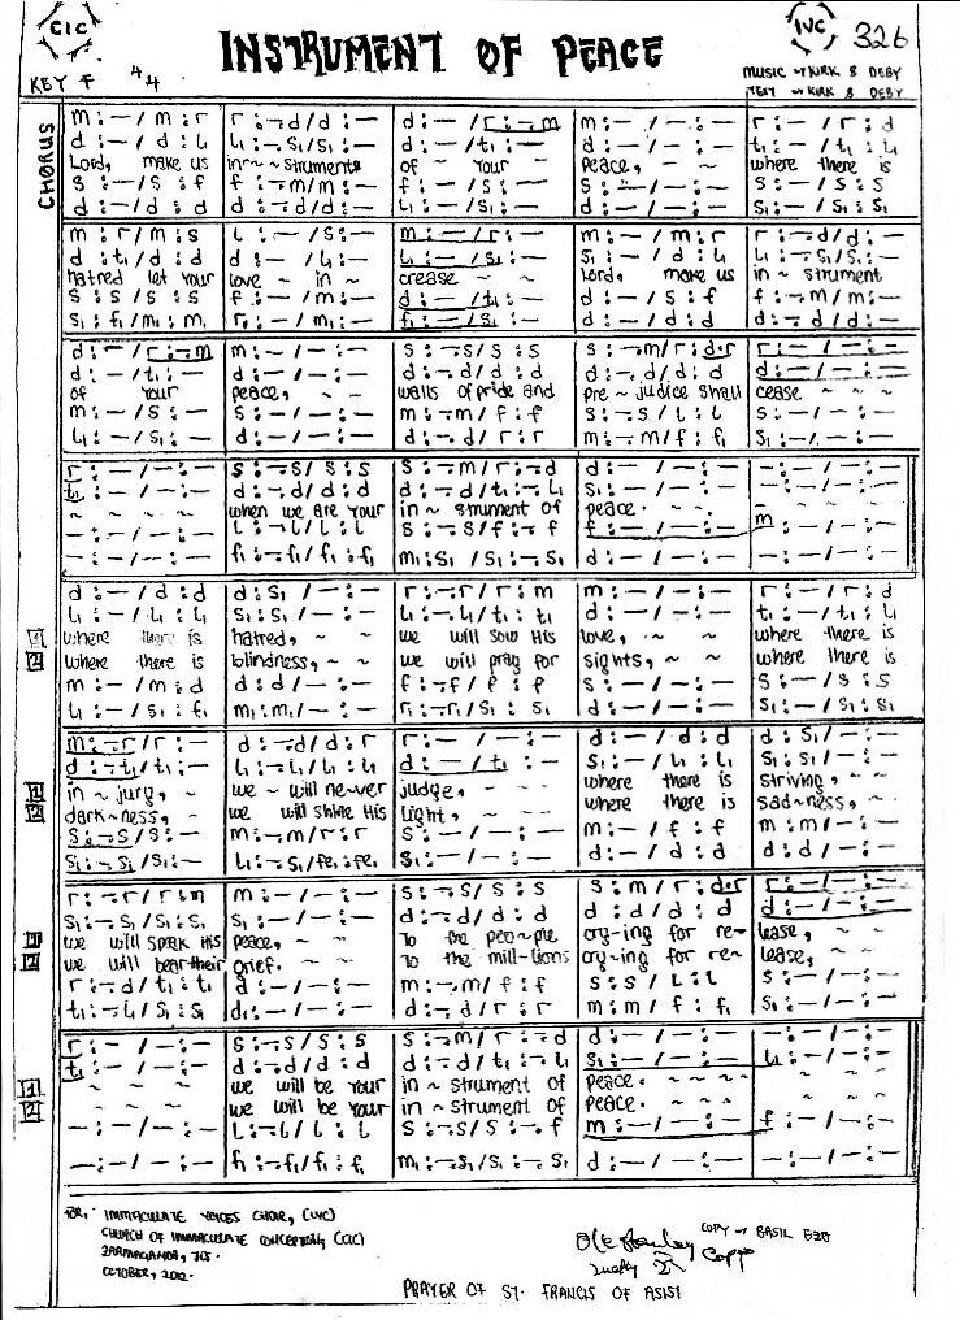 CIC
INSTRUMENT OF PEACE
IVC 326
KEY F 4/4
MUSIC → KIRK & DEBY
TEXT → KIRK & DEBY
CHORUS
m : – / m : r | r : – d / d : – | d : – / r : – m | m : – / – : – | r : – / r : d
d : – / d : l₁ | l₁ : – s₁ / s₁ : – | d : – / t₁ : – | d : – / – : – | t₁ : – / t₁ : l₁
Lord, make us | in ~ ~ struments | of ~ Your ~ | Peace, ~ ~ | where there is
s : – / s : f | f : – m / m : – | f : – / s : – | s : – / – : – | s : – / s : s
d : – / d : d | d : – d / d : – | l₁ : – / s₁ : – | d : – / – : – | s₁ : – / s₁ : s₁
m : r / m : s | l : – / s : – | m : – / r : – | m : – / m : r | r : – d / d : –
d : t₁ / d : d | d : – / l₁ : – | l₁ : – / s₁ : – | s₁ : – / d : l₁ | l₁ : – s₁ / s₁ : –
hatred let Your | love ~ in ~ | crease ~ ~ | Lord, make us | in ~ strument
s : s / s : s | f : – / m : – | d : – / t₁ : – | d : – / s : f | f : – m / m : –
s₁ : f₁ / m₁ : m₁ | r₁ : – / m₁ : – | f₁ : – / s₁ : – | d : – / d : d | d : – d / d : –
d : – / r : – m | m : – / – : – | s : – s / s : s | s : – m / r : d.r | r : – / – : –
d : – / t₁ : – | d : – / – : – | d : – d / d : d | d : – d / d : d | d : – / – : –
of Your | peace, ~ ~ | walls of pride and | pre ~ judice shall | cease ~ ~ ~
m : – / s : – | s : – / – : – | m : – m / f : f | s : – s / l : l | s : – / – : –
l₁ : – / s₁ : – | d : – / – : – | d : – d / r : r | m : – m / f : f₁ | s₁ : – / – : –
r : – / – : – | s : – s / s : s | s : – m / r : – d | d : – / – : – | – : – / – : –
t₁ : – / – : – | d : – d / d : d | d : – d / t₁ : – l₁ | s₁ : – / – : – | – : – / – : –
~ ~ ~ ~ | when we are Your | in ~ strument of | peace. ~ ~ | ~ ~ ~
– : – / – : – | l : – l / l : l | s : – s / f : – f | f : – / – : – | m – / – : –
– : – / – : – | f₁ : – f₁ / f₁ : f₁ | m₁ : s₁ / s₁ : – s₁ | d : – / – : – | – : – / – : –
d : – / d : d | d : s₁ / – : – | r : – r / r : m | m : – / – : – | r : – / r : d
l₁ : – / l₁ : l₁ | s₁ : s₁ / – : – | l₁ : – l₁ / t₁ : t₁ | d : – / – : – | t₁ : – / t₁ : l₁
1 where there is | hatred, ~ ~ | we will sow His | love, ~ ~ | where there is
2 where there is | blindness, ~ ~ | we will pray for | sights, ~ ~ | where there is
m : – / m : d | d : d / – : – | f : – f / f : f | s : – / – : – | s : – / s : s
l₁ : – / s₁ : f₁ | m₁ : m₁ / – : – | r₁ : – r₁ / s₁ : s₁ | d : – / – : – | s₁ : – / s₁ : s₁
m : – r / r : – | d : – d / d : r | r : – / – : – | d : – / d : d | d : s₁ / – : –
d : – t₁ / t₁ : – | l₁ : – l₁ / l₁ : l₁ | d : – / t₁ : – | s₁ : – / l₁ : l₁ | s₁ : s₁ / – : –
1 in ~ jury, ~ | we ~ will ne~ver | judge, ~ ~ ~ | where there is | striving, ~ ~
2 dark~ness, ~ | we will shine His | light, ~ ~ ~ | where there is | sad~ness, ~ ~
s : – s / s : – | m : – m / r : r | s : – / – : – | m : – / f : f | m : m / – : –
s₁ : – s₁ / s₁ : – | l₁ : – s₁ / fe₁ : fe₁ | s₁ : – / – : – | d : – / d : d | d : d / – : –
r : – r / r : m | m : – / – : – | s : – s / s : s | s : m / r : d.r | r : – / – : –
s₁ : – s₁ / s₁ : s₁ | s₁ : – / – : – | d : – d / d : d | d : d / d : d | d : – / – : –
1 we will speak His | peace, ~ ~ | To the peo~ple | cry-ing for re- | lease, ~ ~
2 we will bear their | grief. ~ ~ | To the mill-lions | cry-ing for re~ | lease, ~ ~
r : – d / t₁ : t₁ | d : – / – : – | m : – m / f : f | s : s / l : l | s : – / – : –
t₁ : – l₁ / s₁ : s₁ | d₁ : – / – : – | d : – d / r : r | m : m / f : f₁ | s₁ : – / – : –
r : – / – : – | s : – s / s : s | s : – m / r : – d | d : – / – : – | – : – / – : –
t₁ : – / – : – | d : – d / d : d | d : – d / t₁ : – l₁ | s₁ : – / – : – | l₁ : – / – : –
1 ~ ~ ~ | we will be Your | in ~ strument of | peace. ~ ~ ~ | ~ ~ ~
2 ~ ~ ~ | we will be Your | in ~ strument of | peace. ~ ~ ~ | ~ ~ ~
– : – / – : – | l : – l / l : l | s : – s / s : – f | m : – / – : – | f : – / – : –
– : – / – : – | f₁ : – f₁ / f₁ : f₁ | m₁ : – s₁ / s₁ : – s₁ | d : – / – : – | – : – / – : –
IMMACULATE VOICES CHOIR, (IVC)
CHURCH OF IMMACULATE CONCEPTION, (CIC)
OCTOBER, 2012.
COPY → BASIL
PRAYER OF ST. FRANCIS OF ASISI